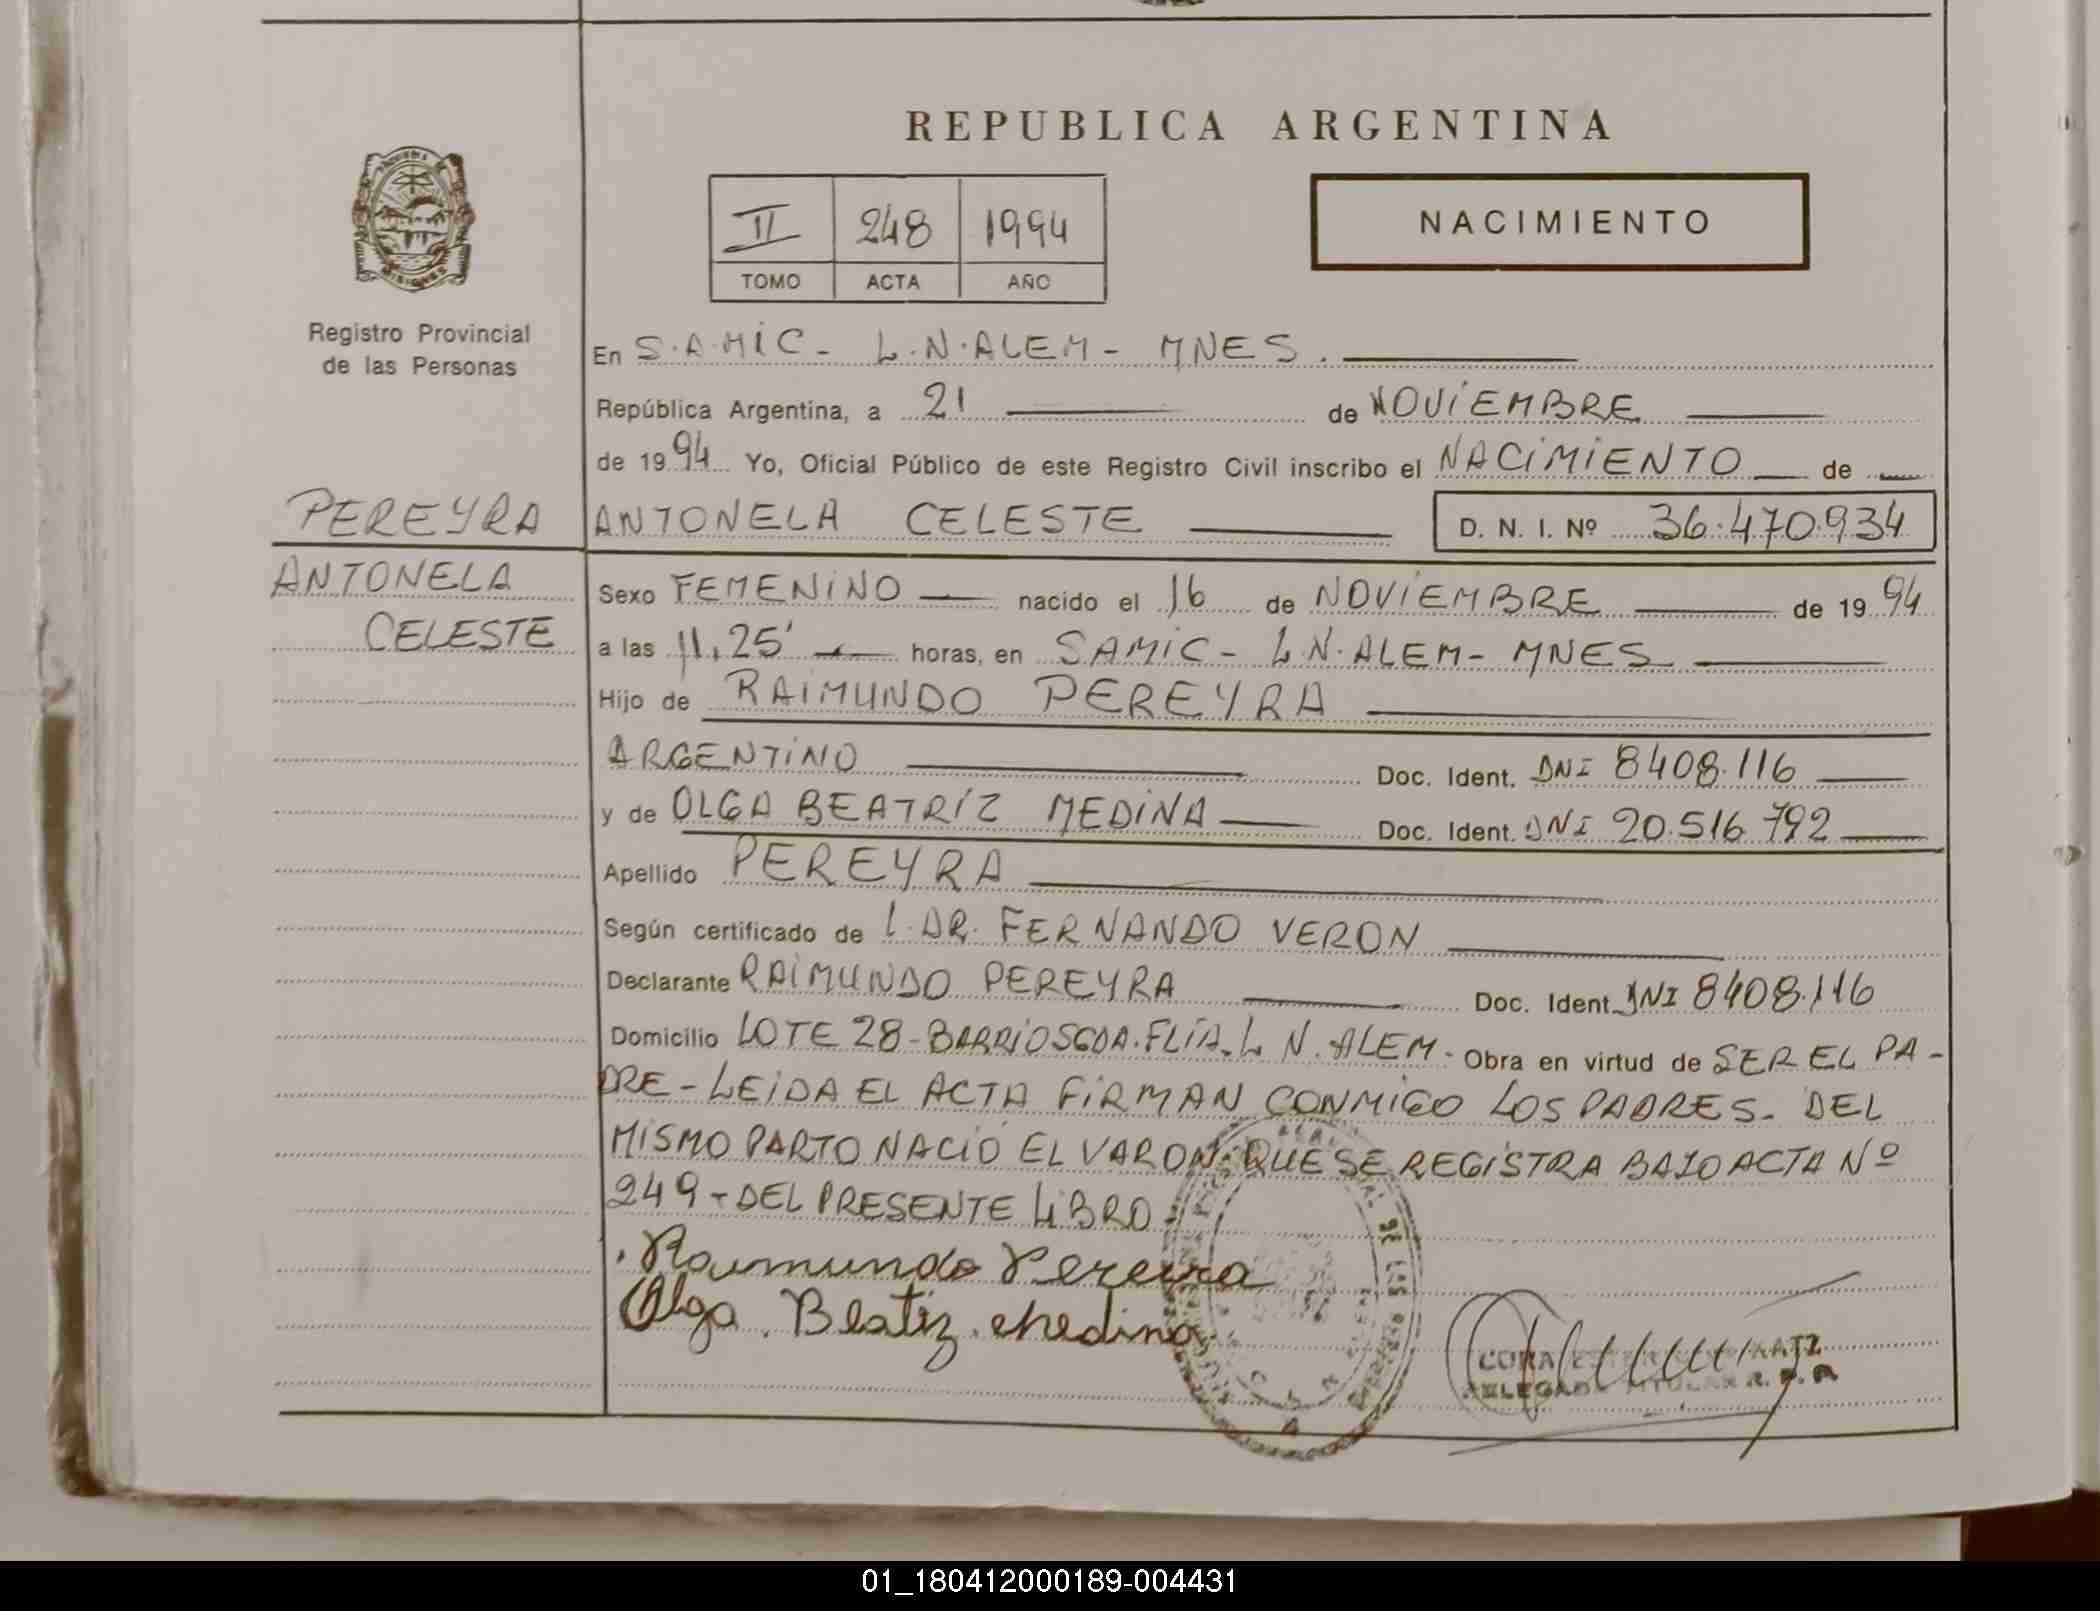 REPUBLICA ARGENTINA
II 248 1994
TOMO ACTA AÑO
NACIMIENTO
Registro Provincial
de las Personas
En S.A.MIC - L.N.ALEM - MNES.
República Argentina, a 21 de NOVIEMBRE
de 1994 Yo, Oficial Público de este Registro Civil inscribo el NACIMIENTO de
PEREYRA
ANTONELA CELESTE
D. N. I. Nº 36.470.934
ANTONELA
CELESTE
Sexo FEMENINO nacido el 16 de NOVIEMBRE de 1994
a las 11,25' horas, en SAMIC - L.N.ALEM - MNES
Hijo de RAIMUNDO PEREYRA
ARGENTINO Doc. Ident. DNI 8408.116
y de OLGA BEATRIZ MEDINA Doc. Ident. DNI 20.516.792
Apellido PEREYRA
Según certificado de L. DR. FERNANDO VERON
Declarante RAIMUNDO PEREYRA Doc. Ident. DNI 8408.116
Domicilio LOTE 28 - BARRIO SGDA. FLIA. L N. ALEM. Obra en virtud de SER EL PA-
DRE - LEIDA EL ACTA FIRMAN CONMIGO LOS PADRES - DEL
MISMO PARTO NACIO EL VARON QUE SE REGISTRA BAJO ACTA Nº
249 - DEL PRESENTE LIBRO -
Raumundo Pereira
Olga Beatiz Medina
CORA
DELEGADA TITULAR R. P. P.
01_180412000189-004431